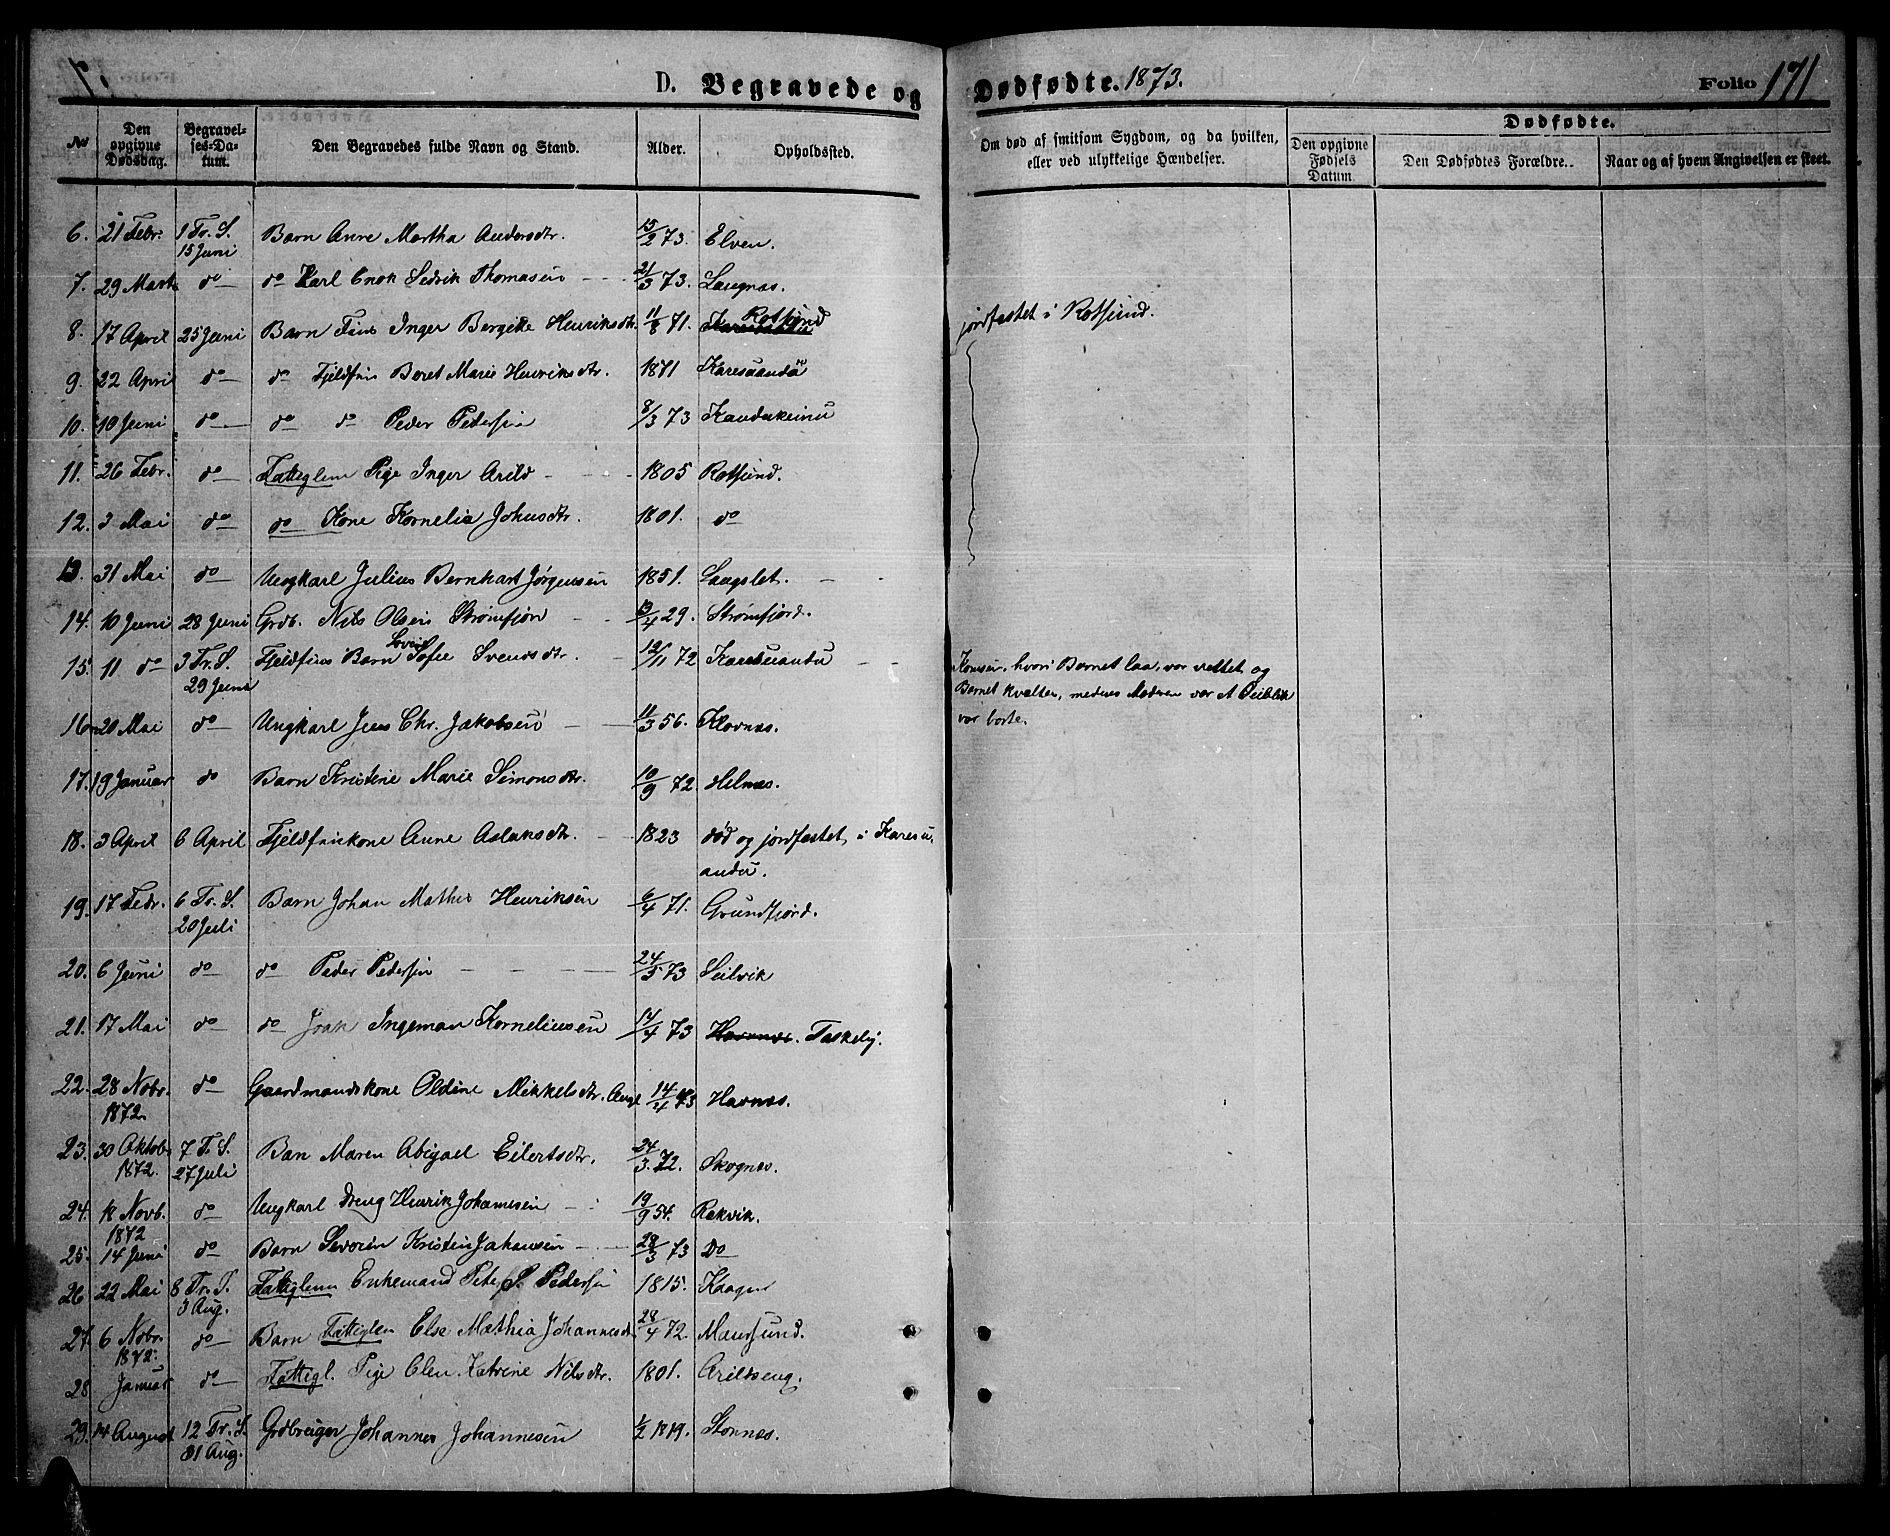 D. Begravede og Dødfødte. 1873.
Folio 171
No
Den opgivne Dødsdag.
Begravelses-Datum.
Den Begravedes fulde Navn og Stand.
Alder.
Opholdssted.
Om død af smitsom Sygdom, og da hvilken, eller ved ulykkelige Hændelser.
Dødfødte.
Den opgivne Fødsels Datum.
Den Dødfødtes Forældre.
Naar og af hvem Angivelsen er skeet.
6. 21 Febr. 1 Tr. S. 15 Juni Barn Anne Martha Andersdtr. 15/2 73. Elven.
7. 29 Marts do do Karl Enok Sedrik Thomasen 21/3 73. Langnæs.
8. 17 April 25 Juni Barn Fins Inger Bergitte Henriksdtr. 11/8 71. Rotsund jordfæstet i Rotsund.
9. 22 April do do Fjeldfin Beret Marie Henriksdtr. 1871 Karesuando
10. 10 Juni do do do Peder Pedersen 8/3 73 Kautokeinu
11. 26 Febr. do Fattiglem Pige Inger Arild 1805 Rotsund.
12. 3 Mai do do Kone Kornelia Johnsdtr. 1801. do
13. 31 Mai do Ungkarl Julius Bernhart Jørgensen 1851. Langslet.
14. 10 Juni 28 Juni Grdb. Nils Olsen Strømfjor 13/4 29. Strømfjord.
15. 11 do 3 Tr. S. 29 Juni Fjeldfins Barn Lovise Sofie Svendsdtr. 12/11 72 Karesuandu Komsen, hvori Barnet laa, var veltet og
Barnet kvalten, medens Moderen var
var borte.
16 20 Mai do Ungkarl Jens Chr. Jakobsen 11/3 56. Klovnæs.
17. 19 Januar do Barn Kristine Marie Simonsdtr. 10/9 72. Helnæs.
18. 3 April 6 April Fjeldfinkone Anne Aslaksdtr. 1823 død og jordfæstet i Karesu
andu.
19. 17 Febr. 6 Tr. S. 20 Juli Barn Johan Mathis Henriksen 6/4 71. Grundfjord.
20. 6 Juni do do Peder Pedersen 24/5 73 Seilvik
21. 17 Mai do do Isak Ingeman Korneliussen 17/4 73 Havnæs. Taskeby.
22. 28 Nobr. 1872 do Gaardmandskone Oldine Mikkelsdtr. 14/4 73 Havnæs.
23. 30 Oktob. 1872. 7 Tr. S. 27 Juli Barn Maren Abigael Eilertsdtr. 24/3. 72. Skognæs.
24. 18 Novb. 1872 do Ungkarl Dreng Henrik Johannesen 19/9 54. Rakvik.
25. 14 Juni do Barn Severin Kristin Johansen 28/3 73 Do
26 22 Mai 8 Tr. S. 3 Aug. Fattiglem Enkemand Peter S. Pedersen 1815. Kaagen
27. 6 Nobr. 1872. do Barn Fattiglem Else Mathia Johannesdtr 28/4 72. Maursund.
28 Januar do Fattigl. Pige Elen Katrine Nilsdtr. 1801. Arildseng.
29. 14 August 12 Tr. S. 31 Aug. Grdbruger Johannes Johannesen 1/2 1819. Stornæs.